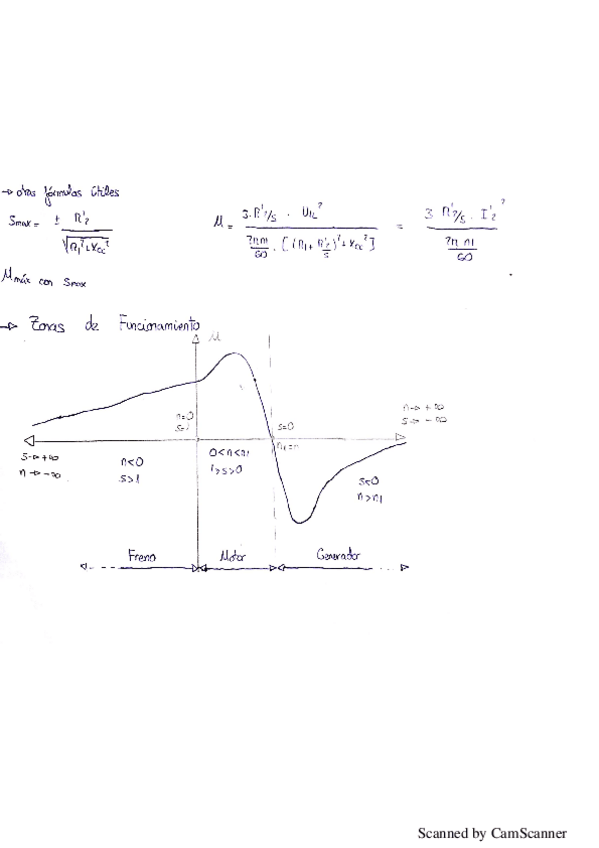 → otras fórmulas útiles
Smax = ± R'2 / √(R1² + Xcc²)
M = 3·R'2/s · U1L² / (2πn1/60 · [(R1 + R'2/s)² + Xcc²]) = 3 R'2/s · I'2² / (2π n1/60)
Mmáx con Smax
→ Zonas de Funcionamiento
M
n=0
s=1
s=0
n1=n
n→+∞
s→-∞
s→+∞
n→-∞
n<0
s>1
0<n<n1
1>s>0
s<0
n>n1
Freno Motor Generador
Scanned by CamScanner